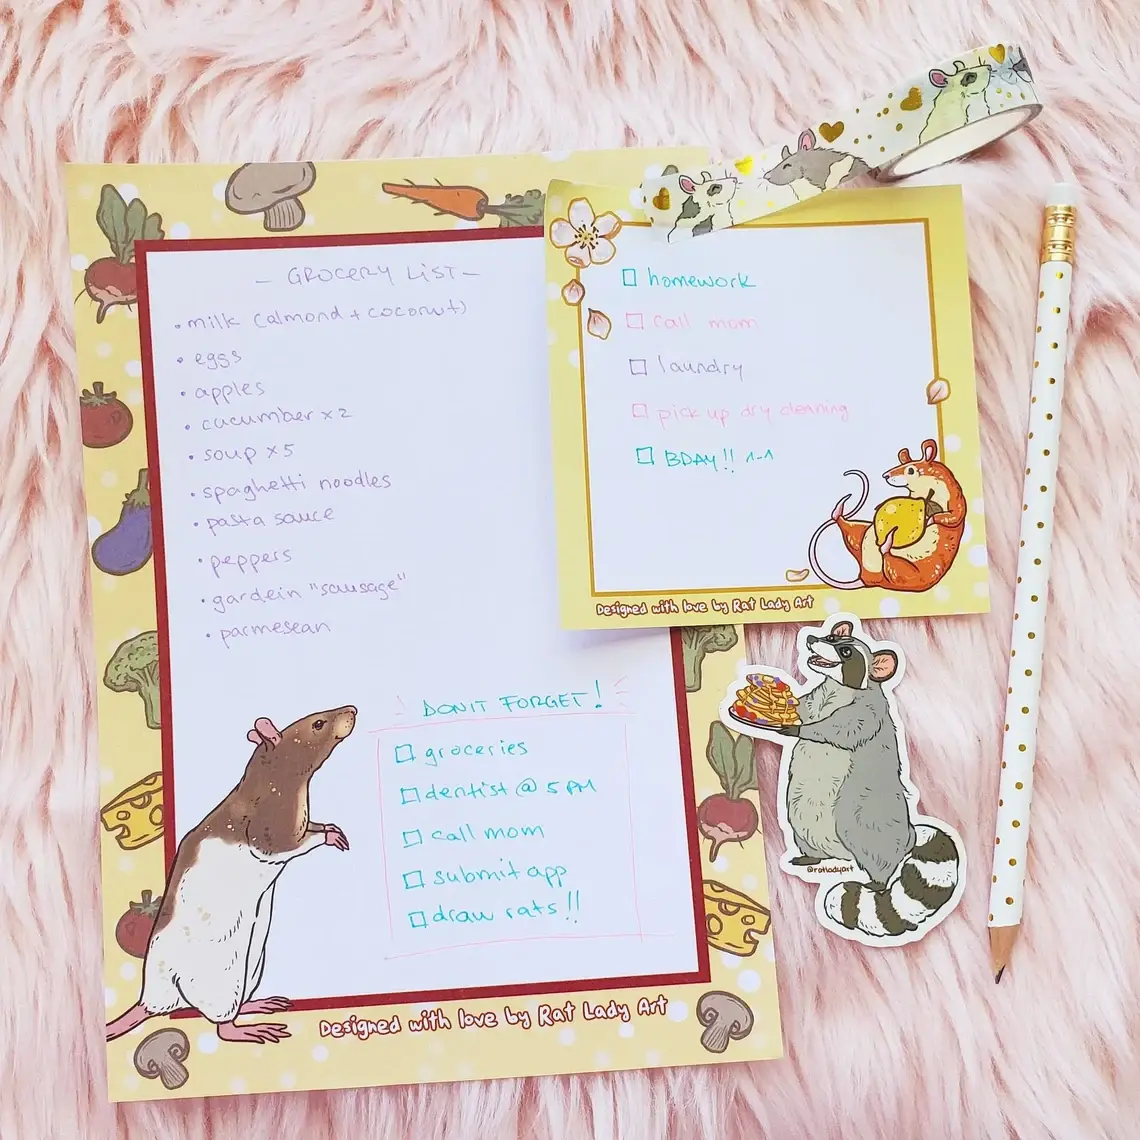 - GROCERY LIST -
• milk (almond + coconut)
• eggs
• apples
• cucumber x2
• soup x5
• spaghetti noodles
• pasta sauce
• peppers
• gardein "sausage"
• parmesean
DON'T FORGET!
groceries
dentist @ 5 PM
call mom
submit app
draw rats!!
Designed with love by Rat Lady Art
homework
call mom
laundry
pick up dry cleaning
BDAY!! ^-^
Designed with love by Rat Lady Art
@ratladyart